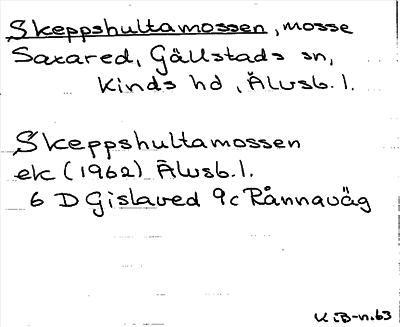 Skeppshultamossen, mosse
Saxared, Gällstads sn,
Kinds hd, Älvsb. l.
Skeppshultamossen
ek (1962) Älvsb. l.
6 D Gislaved 9c Rånnaväg
KiB-n.63